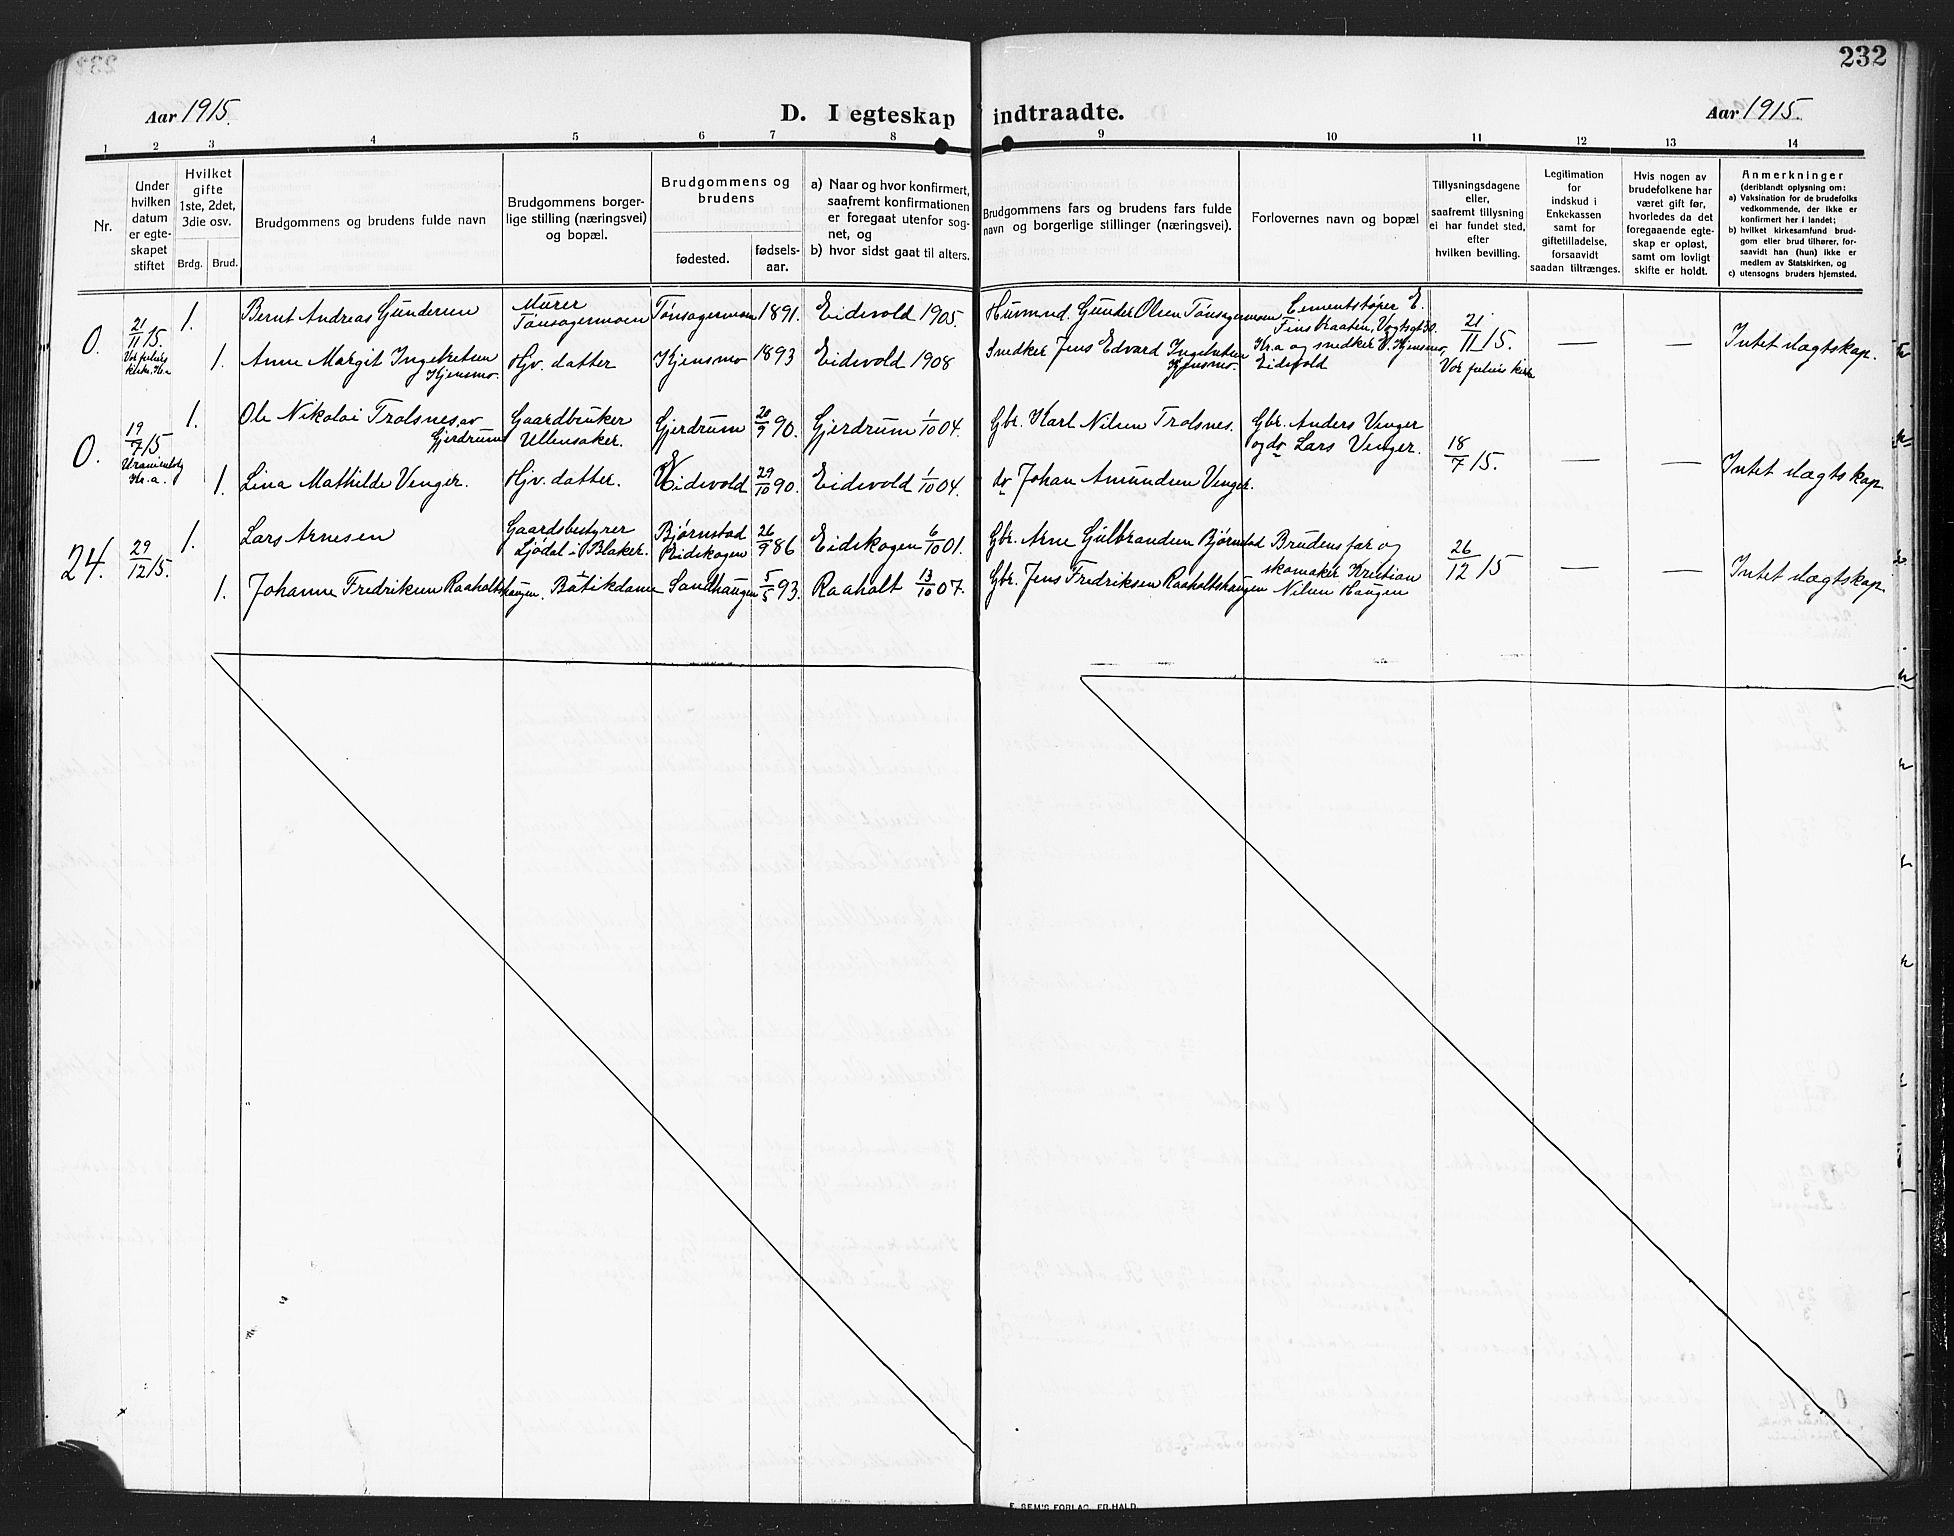 232
Aar 1915.
D. I egteskap indtraadte.
Aar 1915.
1 2 3 4 5 6 7 8 9 10 11 12 13 14
Nr.
Under hvilken datum er egteskapet stiftet
Hvilket gifte 1ste, 2det, 3die osv.
Brdg. Brud.
Brudgommens og brudens fulde navn
Brudgommens borgerlige stilling (næringsvei) og bopæl.
Brudgommens og brudens
fødested.
fødsels-aar.
a) Naar og hvor konfirmert, saafremt konfirmationen er foregaat utenfor sognet, og
b) hvor sidst gaat til alters.
Brudgommens fars og brudens fars fulde navn og borgerlige stillinger (næringsvei).
Forlovernes navn og bopæl
Tillysningsdagene eller, saafremt tillysning ei har fundet sted, efter hvilken bevilling.
Legitimation for indskud i Enkekassen samt for giftetilladelse, forsaavidt saadan tiltrænges.
Hvis nogen av brudefolkene har været gift før, hvorledes da det foregaaende egteskap er opløst, samt om lovligt skifte er holdt.
Anmerkninger
(deriblandt oplysning om:
a) Vaksination for de brudefolks vedkommende, der ikke er konfirmert her i landet;
b) hvilket kirkesamfund brudgom eller brud tilhører, forsaavidt han (hun) ikke er medlem av Statskirken, og
c) utensogns bruders hjemsted.
0. 21/11 15. Vor frelsers kirke. Kr.a
1. Bernt Andreas Gundersen Murer Tønsagermoen Tønsagermoen 1891. Eidsvold 1905. Husmnd. Gunder Olsen Tønsagermoen Cementstøper E. Finsbraaten, Vogtsgt 30. Kr.a og snedker O. Kjensmo, Eidsvold 21/11 15. Vor frelsers kirke — — Intet slægtskap.
1. Anne Margit Ingebretsen Kjensmo. Gjv. datter Kjensmo 1893 Eidsvold 1908 Snedker Jens Edvard Ingebretsen Kjensmo.
0. 19/7 15 Uranienborg Kr.a.
1. Ole Nikolai Trolsnes, av Gjerdrum Gaardbruker Ullensaker. Gjerdrum 20/9 90. Gjerdrum 1/10 04. Gbr. Karl Nilsen Trolsnes. Gbr. Anders Venger og do Lars Venger. 18/7 15. — — Intet slægtskap.
1. Lina Mathilde Venger. Gjv. datter. Eidsvold 29/10 90. Eidsvold 1/10 04. do Johan Amundsen Venger.
24. 29/12 15.
1. Lars Arnesen Gaardsbestyrer Ljødal i Blaker. Bjørnstad Eidskogen 26/9 86 Eidskogen 6/10 01. Gbr. Arne Gulbrandsen Bjørnstad Brudens far og skomaker Kristian Nilsen Haugen 26/12 15 — — Intet slægtskap.
1. Johanne Fredriksen Raaholtshaugen. Butikdame Sandhaugen 5/5 93. Raaholt 13/10 07. Gbr. Jens Fredriksen Raaholtshaugen
E. SEM'S FORLAG, FR.HALD